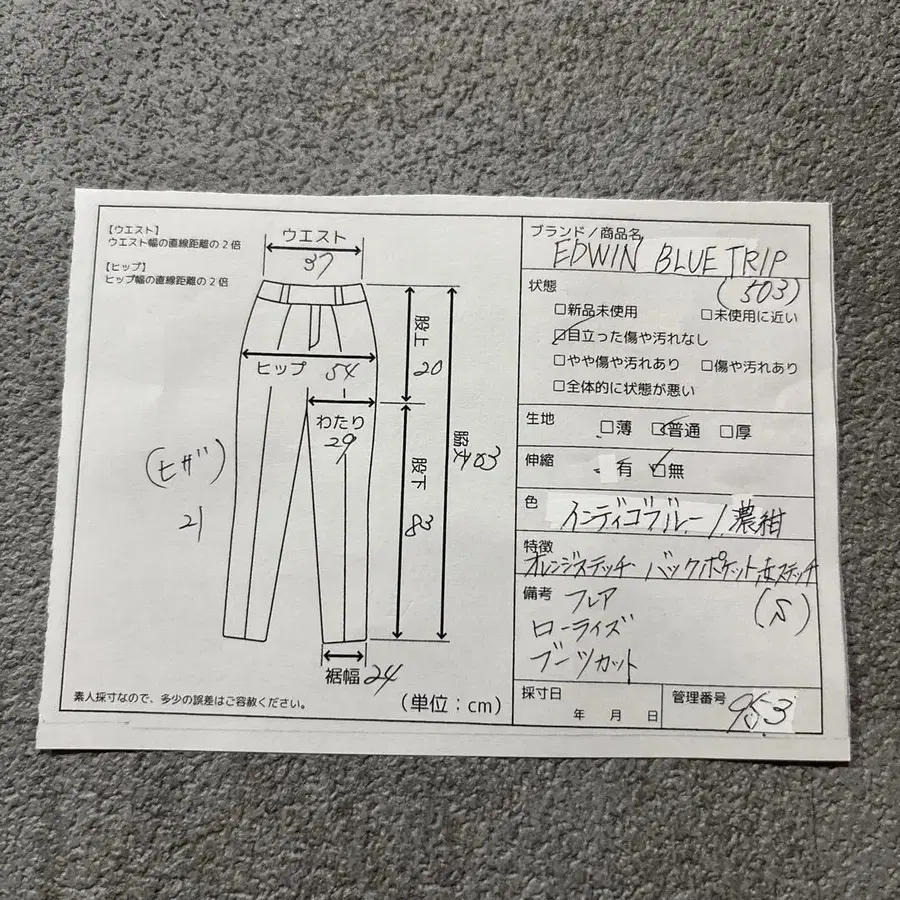 【ウエスト】
ウエスト幅の直線距離の2倍
【ヒップ】
ヒップ幅の直線距離の2倍
ウエスト
37
股上
20
ヒップ 54
わたり
29
股下
83
総丈 103
(ヒザ)
21
裾幅 24
素人採寸なので、多少の誤差はご容赦ください。
(単位:cm)
ブランド/商品名
EDWIN BLUE TRIP
(503)
状態
□新品未使用 □未使用に近い
☑目立った傷や汚れなし
□やや傷や汚れあり □傷や汚れあり
□全体的に状態が悪い
生地 □薄 ☑普通 □厚
伸縮 有 ☑無
色 インディゴブルー/濃紺
特徴
オレンジステッチ バックポケット ステッチ
備考 フレア (S)
ローライズ
ブーツカット
採寸日
年 月 日
管理番号 953